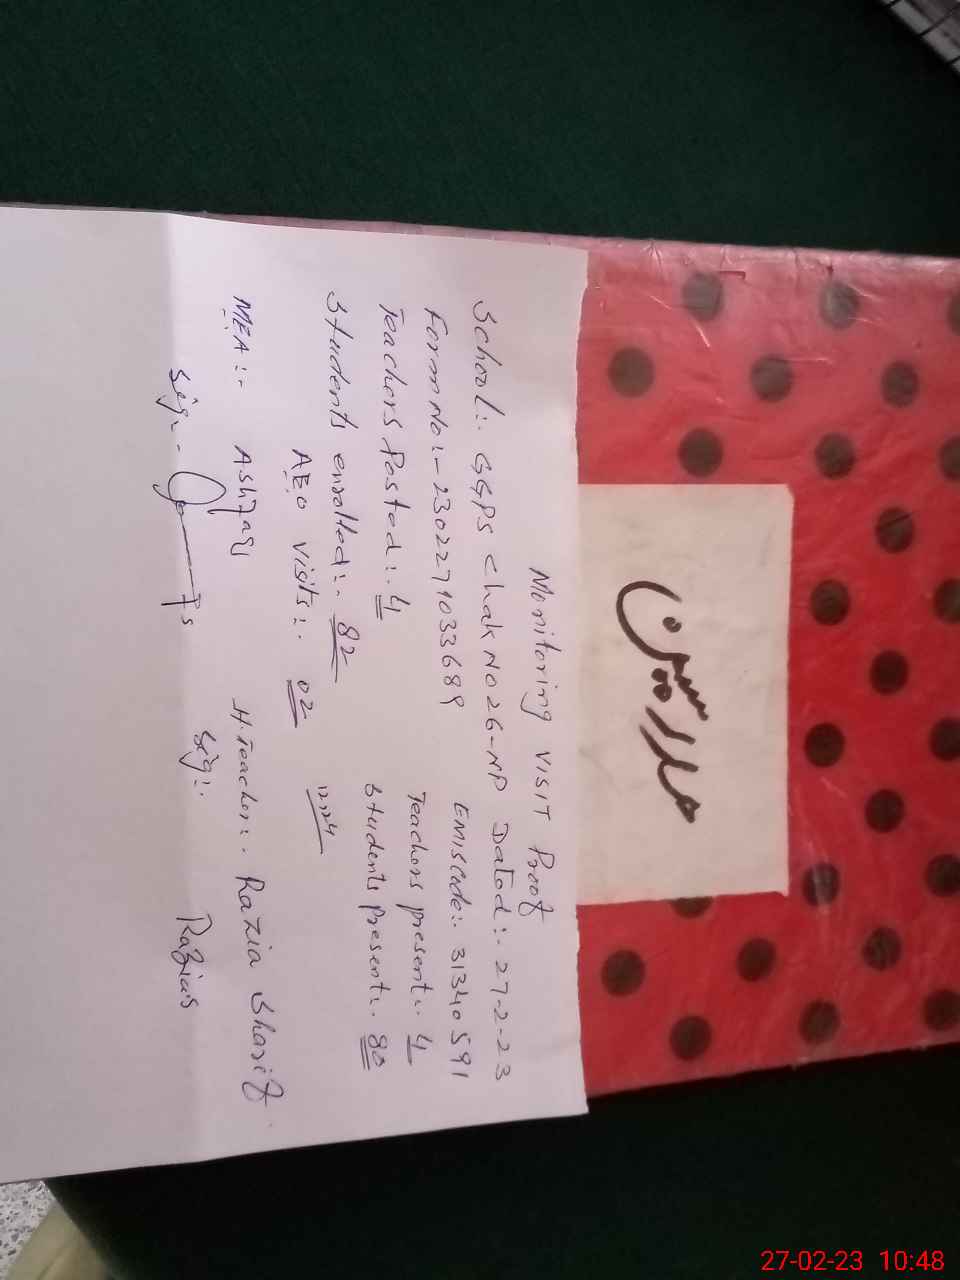 ملازمین
Monitoring VISIT Proof
School:- GGPS Chak No 26-NP Dated:- 27-2-23
Form No:- 2302271033689 EMIS code:- 31340591
Teachers Posted:- 4 Teachers present:- 4
Students enrolled:- 82 Students Present:- 80
AEO visits:- 02
MEA:- Ashfaq H.Teacher:- Razia Sharif
Sig:- Sig:-
27-02-23 10:48